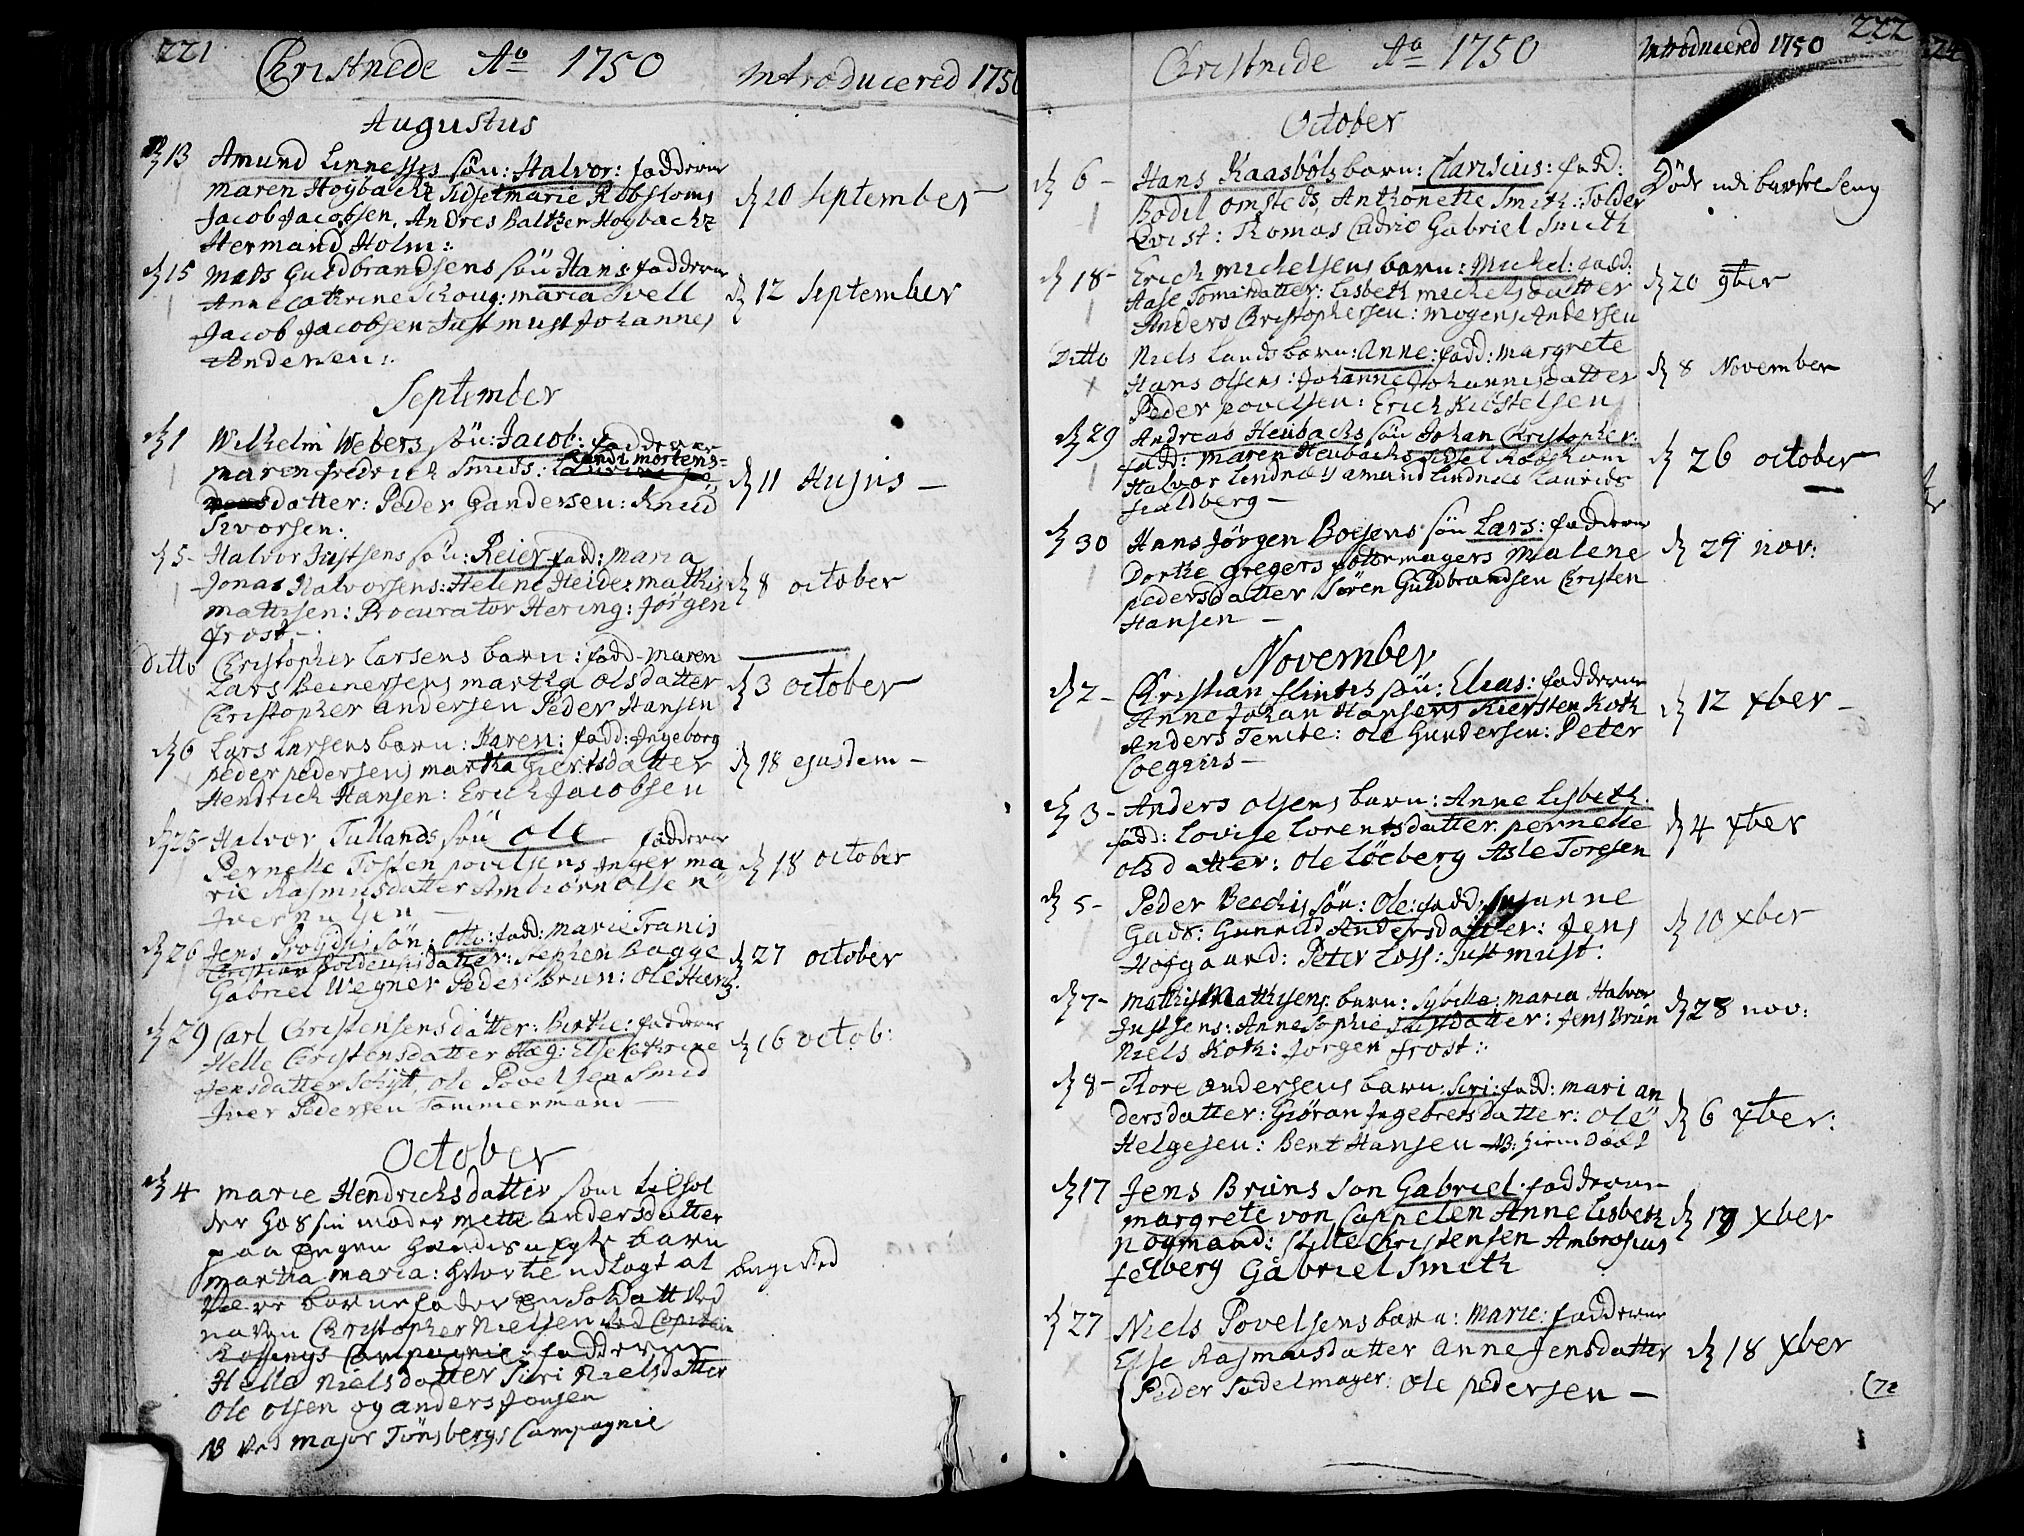 221
Christnede Aō 1750
Introducered 1750
Augustus
13 Amund Linneses sön: Halvor: fadderne
maren Höybachs Sidsel marie Robsloms
Jacob Jacobsen. Andres Baltzer Hoybachs
Hermand Holm:
20 September
15 Mads Guldbrandsens sön Hans fadderne
Anne Cathrine Schoug: maria Svell
Jacob Jacobsen Just must Johannes
Andersen:
12 September
September
1 Wilhelm Webers sön: Jacob: fadderne
maren fredrich Smids: Randi mortens=
datter: Peder Gundersen: Knud
Sivorsen:
11 Hujus
5 Halvor Justsens sön: Reier fad: maria
Jonas Halvorsens: Helene Heide: mathis
mathisen: Procurator Hering: Jörgen
frost
8 october
Ditto Christopher Larsens barn: fadd maren
Lars Beinersens martha olsdatter
Christopher andersen Peder Hansen
3 october
6 Lars Larsens barn: Karen: fadd: Ingeborg
peder pedersens martha Giertsdatter
Hendrich Hansen: Erich Jacobsen
18 ejusdem
25 Halvor Tullands sön ole fadderne
Pernelle Tosten povelsens Inger ma
rie Rasmusdatter Ambiörn olsen
Iver nilsen
18 october
26 Jens sön: Otto: fadd: marie Franis
datter: Stephen Bagge
Gabriel Wegner Peder Brun: ole
27 october
29 Carl Christensens datter: Birthe: fadderne
Helle Christensdatter Hæg: Else Cathrine
Jensdatter Schytt, ole Povelsen Smid
Iver Pedersen Tömmermand
16 octob:
October
4 marie Hendrichsdatter som
der hos sin moder mette andersdatter
paa Engen hendis uegte barn
martha maria: hvortil udlagt at
være barnefader En Soldatt ved
naven Christopher Nielsen ved Capitain
Compagnie: fadderne
Helle Nielsdatter Siri Nielsdatter
ole olsen og anders Jonsen
NB ved major Tönsbergs Compagnie
222
Christnede Aō 1750
Introducered 1750
October
6 Hans Kaasböls barn: Claricius: fadd:
Bodil omsteds Anthonette Smith: Tolder
Qvist: Thomas Cudrio Gabriel Smith
Döde udi barselseng
18 Erich michelsens barn: Michel: fadd:
Aase Tomisdatter: Lisbeth michelsdatter
Anders Christophersen: mogens Andersen
20 9ber
Ditto Niels Lands barn: Anne: fadd: margrete
Hans olsens: Johanne Johannisdatter
Peder povelsen: Erich Kiöstelsen
8 November
29 Andreas Heubachs sön Johan Christopher:
fadd: maren Heubachs Sidsel Robsham
Halvor Lindnes amund Lindnes Laurids
fialdberg
26 october
30 Hans Jörgen Boesens sön Lars: fadderne
Dorthe gregers pottemagers malene
pedersdatter Sören Guldbrandsen Christen
Hansen
29 nov:
November
2 Christian flintis sön: Elias: fadderne
Anne Johan Hansens Kiersten Koth
Anders Temte: ole Gundersen: Peter
Coegnis
12 xber
3 Anders olsens barn: Anne Lisbeth
fadd: Lovise Lorentsdatter pernelle
olsdatter: ole Löeberg Asle Toresen
4 xber
5 Peder Beechis sön: Ole: fadd: Susanne
Gads: Gunnild Andersdatter: Jens
Hofgaard: Peter Loss: Just must:
10 xber
7 Mathis Mathisens barn: Sybille: maria Halvor
Justsens: Anne Sophie Justsdatter: Jens Brun
Niels Koth: Jörgen frost:
28 nov:
8 Thore andersens barn: Siri: fadd: mari an
dersdatter: Giöran Ingebretsdatter: Ole
Helgesen: Bent Hansen NB:
6 xber:
17 Jens Bruns Son Gabriel fadderne
margrete von Cappelen Anne Lisbeth
Noymand: Stille Christensen Ambrosius
felberg Gabriel Smith
19 xber
27 Niels Povelsens barn: Marie: fadderne
Else Rasmusdatter Anne Jensdatter
Peder Sadelmager: ole pedersen
18 xber